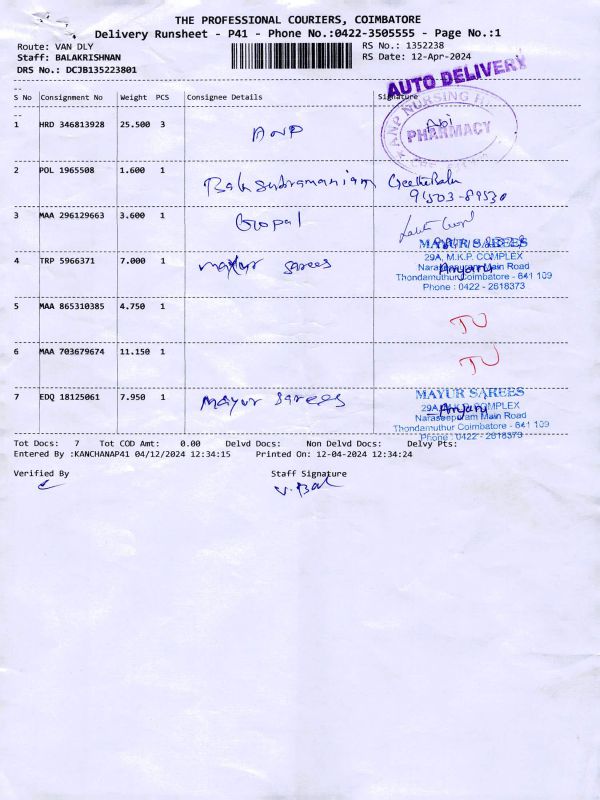 THE PROFESSIONAL COURIERS, COIMBATORE
Delivery Runsheet - P41 - Phone No.:0422-3505555 - Page No.:1
Route: VAN DLY
RS No.: 1352238
Staff: BALAKRISHNAN
RS Date: 12-Apr-2024
DRS No.: DCJB135223801
AUTO DELIVERY
S No Consignment No Weight PCS Consignee Details Signature
1 HRD 346813928 25.500 3 ANP Abi
ANP NURSING
PHARMACY
2 POL 1965508 1.600 1 Balasubramaniam GeethaBalu
3 MAA 296129663 3.600 1 Gopal
4 TRP 5966371 7.000 1 mayur sarees
MAYUR SAREES
29A, M.K.P. COMPLEX
Naraseepuram Main Road
Thondamuthur Coimbatore - 641 109
Phone : 0422 - 2618373
5 MAA 865310385 4.750 1 TU
6 MAA 703679674 11.150 1 TU
7 EDQ 18125061 7.950 1 mayur sarees
MAYUR SAREES
29A, M.K.P. COMPLEX
Naraseepuram Main Road
Thondamuthur Coimbatore - 641 109
Phone : 0422 - 2618373
Tot Docs: 7 Tot COD Amt: 0.00 Delvd Docs: Non Delvd Docs: Delvy Pts:
Entered By :KANCHANAP41 04/12/2024 12:34:15 Printed On: 12-04-2024 12:34:24
Verified By Staff Signature
V. Bal